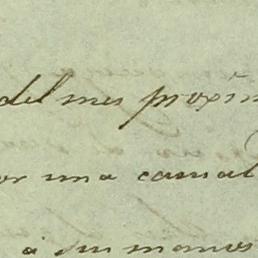 del mes proxim
or una casual
a sus manos